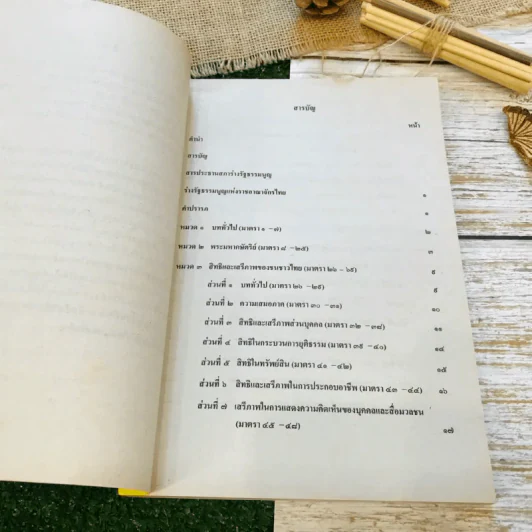 สารบัญ
หน้า
คำนำ
สารบัญ
สารประธานสภาร่างรัฐธรรมนูญ
ร่างรัฐธรรมนูญแห่งราชอาณาจักรไทย ๑
คำปรารภ ๑
หมวด ๑ บททั่วไป (มาตรา ๑ -๗)
หมวด ๒ พระมหากษัตริย์ (มาตรา ๘ -๒๕) ๓
หมวด ๓ สิทธิและเสรีภาพของชนชาวไทย (มาตรา ๒๖ - ๖๙) ๕
ส่วนที่ ๑ บททั่วไป (มาตรา ๒๖ -๒๙) ๕
ส่วนที่ ๒ ความเสมอภาค (มาตรา ๓๐ -๓๑) ๑๐
ส่วนที่ ๓ สิทธิและเสรีภาพส่วนบุคคล (มาตรา ๓๒ -๓๘) ๑๑
ส่วนที่ ๔ สิทธิในกระบวนการยุติธรรม (มาตรา ๓๙ -๔๐) ๑๔
ส่วนที่ ๕ สิทธิในทรัพย์สิน (มาตรา ๔๑ -๔๒) ๑๕
ส่วนที่ ๖ สิทธิและเสรีภาพในการประกอบอาชีพ (มาตรา ๔๓ -๔๔) ๑๖
ส่วนที่ ๗ เสรีภาพในการแสดงความคิดเห็นของบุคคลและสื่อมวลชน
(มาตรา ๔๕ -๔๘) ๑๗